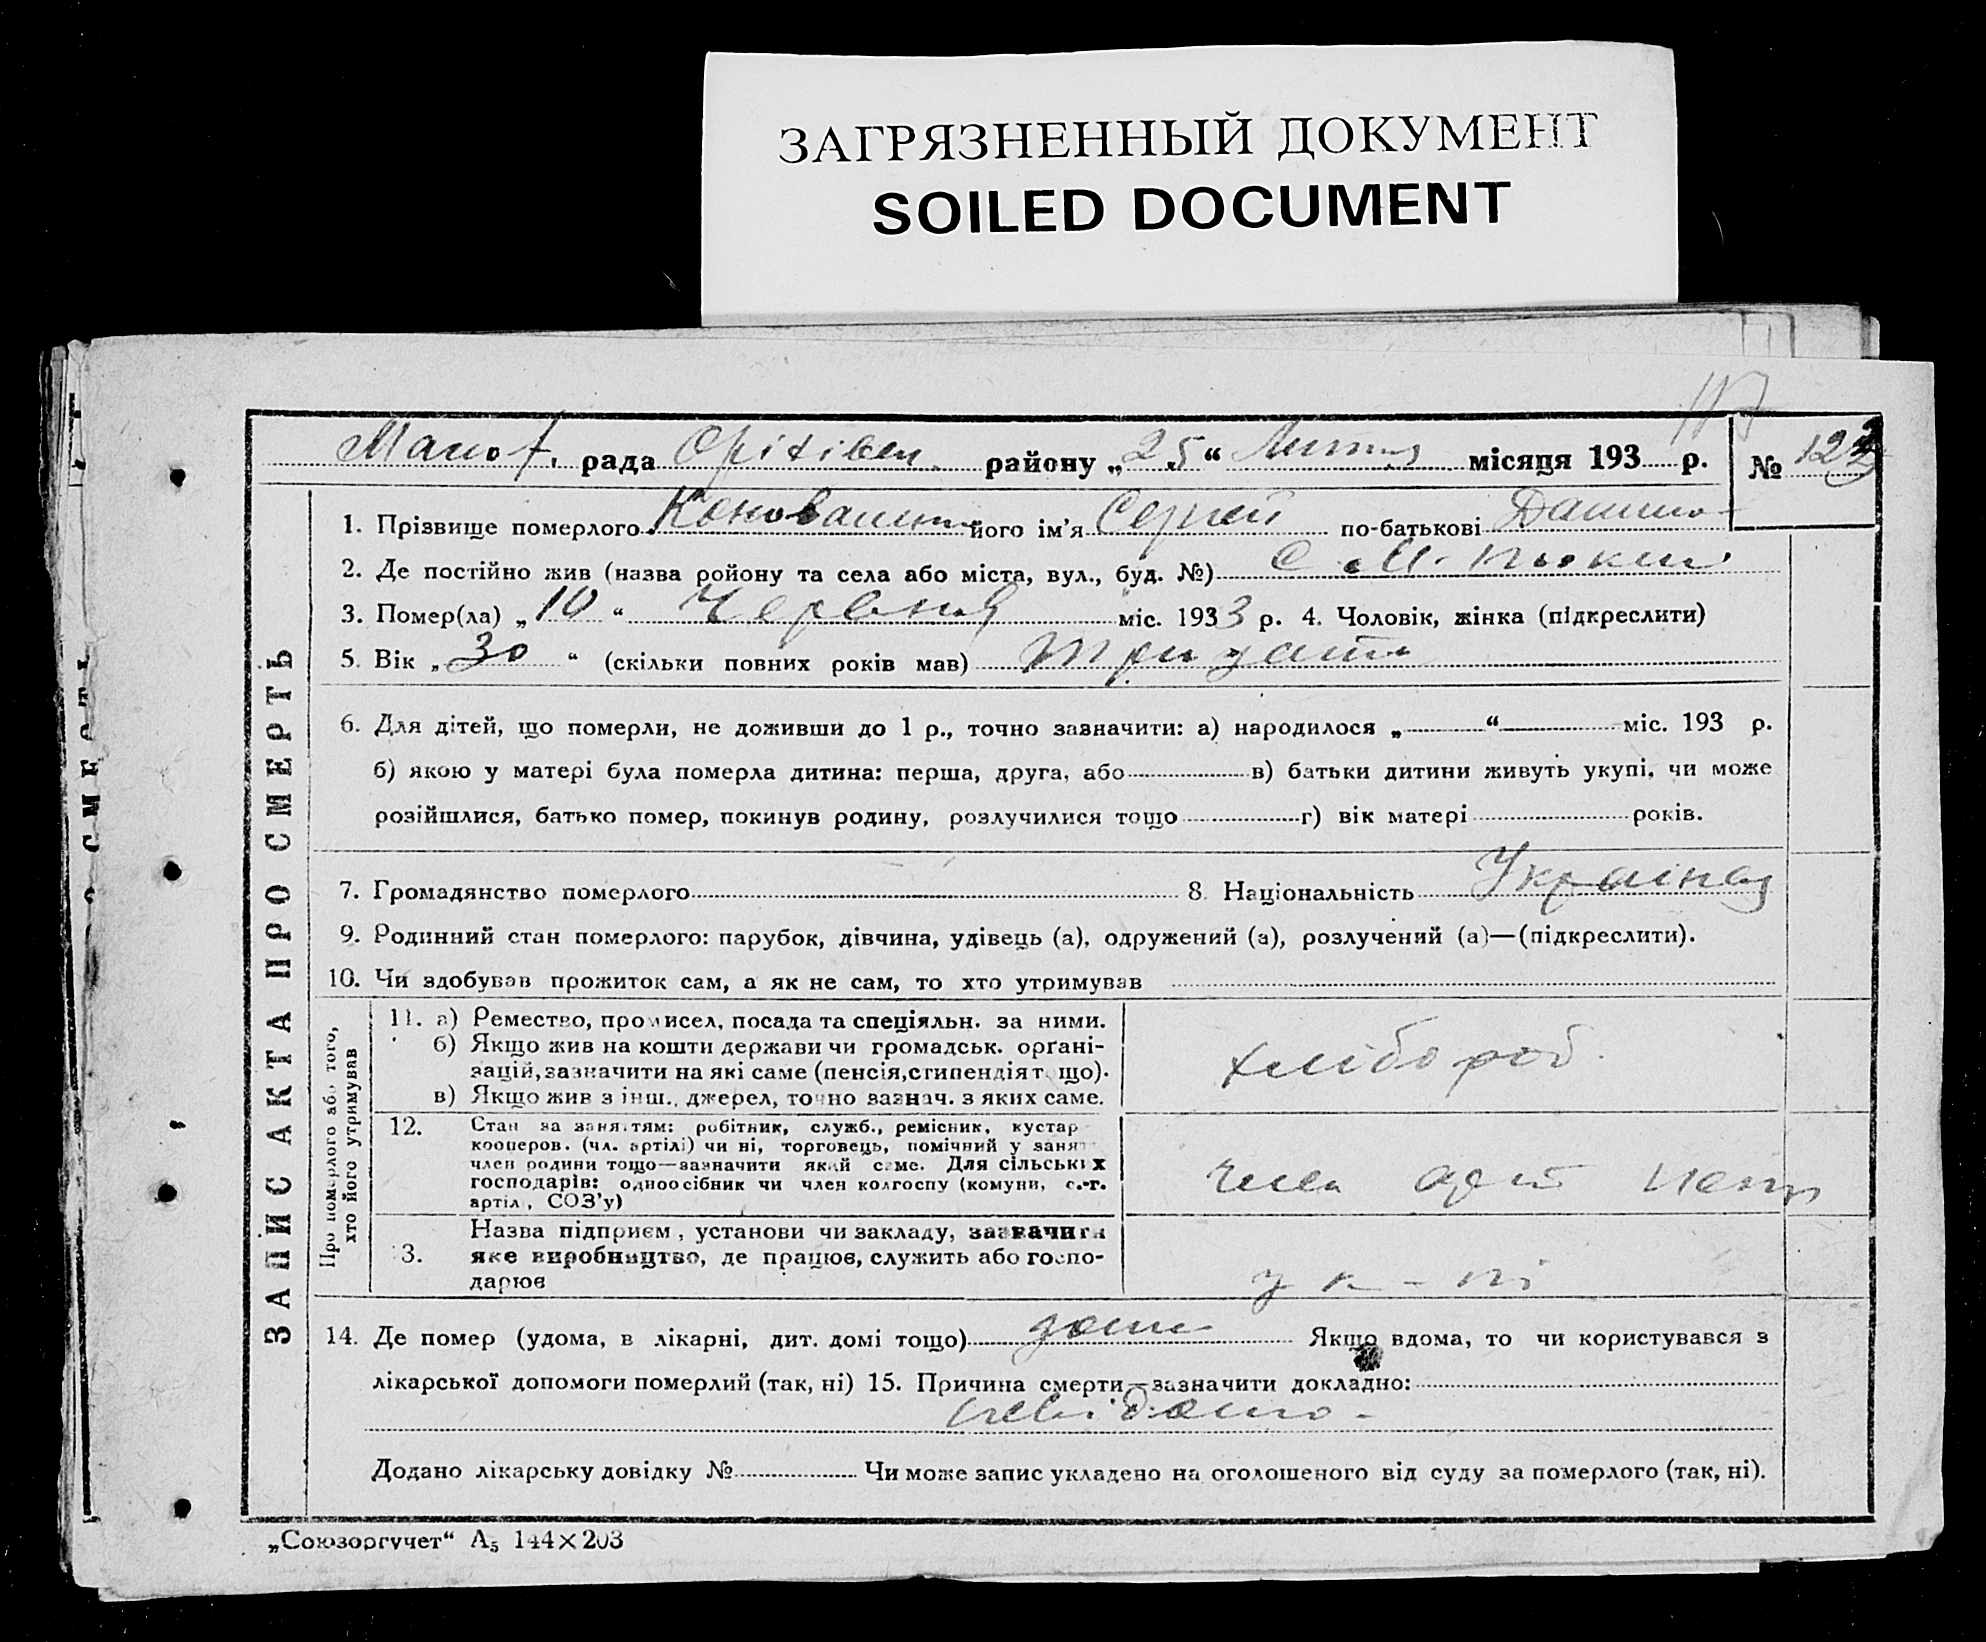 ЗАГРЯЗНЕННЫЙ ДОКУМЕНТ
SOILED DOCUMENT
117
рада Оріхівськ. району „25“ Липня місяця 193 р. № 122
ЗАПИС АКТА ПРО СМЕРТЬ
1. Прізвище померлого його ім'я Сергей по-батькові Данило-
2. Де постійно жив (назва ройону та села або міста, вул., буд. №) с. М.
3. Помер(ла) „10“ Червня міс. 1933 р. 4. Чоловік, жінка (підкреслити)
5. Вік „30“ (скільки повних років мав) тридцать
6. Для дітей, що померли, не доживши до 1 р., точно зазначити: а) народилося „ “ міс. 193 р.
б) якою у матері була померла дитина: перша, друга, або в) батьки дитини живуть укупі, чи може
розійшлися, батько помер, покинув родину, розлучилися тощо г) вік матері років.
7. Громадянство померлого 8. Національність Украінец
9. Родинний стан померлого: парубок, дівчина, удівець (а), одружений (а), розлучений (а)—(підкреслити).
10. Чи здобував прожиток сам, а як не сам, то хто утримував
Про померлого або того, хто його утримував
11. а) Ремество, промисел, посада та спеціяльн. за ними.
б) Якщо жив на кошти держави чи громадськ. органі-
зацій, зазначити на які саме (пенсія, стипендія тощо).
в) Якщо жив з інш. джерел, точно зазнач. з яких саме.
хлібороб.
12. Стан за заняттям: робітник, служб., ремісник, кустар
кооперов. (чл. артілі) чи ні, торговець, помічний у занят
член родини тощо—зазначити який саме. Для сільських
господарів: одноосібник чи член колгоспу (комуни, с.-г.
артіл, СОЗ'у)
член
13. Назва підприєм, установи чи закладу, зазначити
яке виробництво, де працює, служить або госпо-
дарює
у к-пі
14. Де помер (удома, в лікарні, дит. домі тощо) дома Якщо вдома, то чи користувався з
лікарської допомоги померлий (так, ні) 15. Причина смерти—зазначити докладно:
невідомо-
Додано лікарську довідку № Чи може запис укладено на оголошеного від суду за померлого (так, ні).
„Союзоргучет“ А₅ 144×203